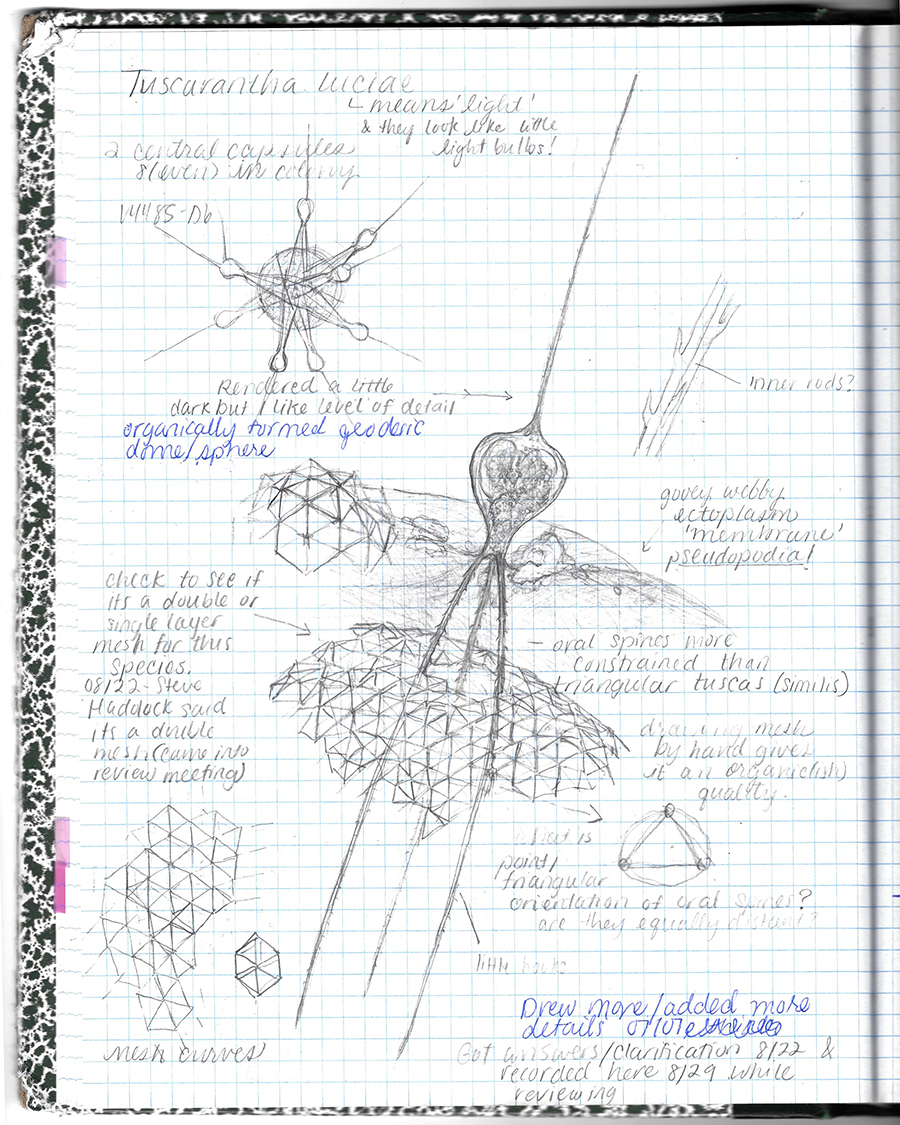 Tuscarantha luciae
└ means 'light'
& they look like little
light bulbs!
2 central capsules
8 (even) in colony
V4485-D6
Rendered a little
dark but I like level of detail
organically formed geodesic
dome/sphere
inner rods?
gooey webby
ectoplasm
'membrane'
pseudopodia!
check to see if
its a double or
single layer
mesh for this
species.
08/22 - Steve
Haddock said
its a double
mesh (came into
review meeting)
- oral spines more
constrained than
triangular tuscas (similis)
drawing mesh
by hand gives
it an organic(ish)
quality.
What is
point/
triangular
orientation of oral spines?
are they equally distant?
little hooks
mesh curves
Drew more/added more
details
Got answers/clarification 8/22 &
recorded here 8/29 while
reviewing